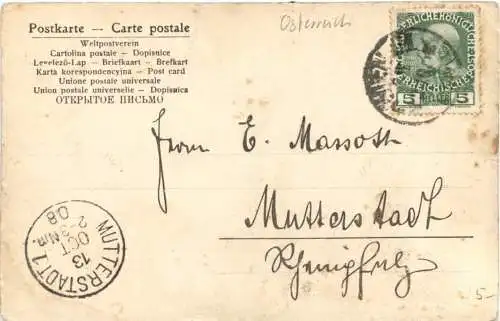 Postkarte - Carte postale
Weltpostverein
Cartolina postale - Dopisnice
Levelező-Lap - Briefkaart - Brefkort
Karta korespondencyjna - Post card
Unione postale universale
Union postale universelle - Dopisnica
ОТКРЫТОЕ ПИСЬМО
Österreich
5 HELLER 5
Herrn E. Massott
Mutterstadt
Rheinpfalz
MUTTERSTADT 1
13
OCT
2-3 Nm.
08
5-